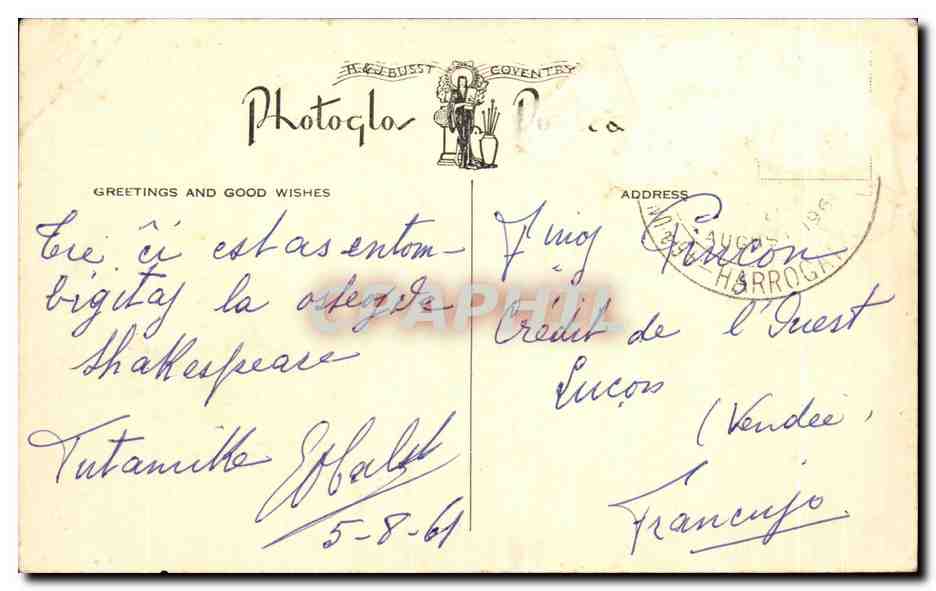 H & J BUSST COVENTRY
Photoglo
GREETINGS AND GOOD WISHES
Tie ĉi estas entom-
bigitaj la ostoj de
Shakespeare
Tutamike
5-8-61
ADDRESS
AUGUST 196
HARROGA
F-inoj Pinçon
Crédit de l'Ouest
Luçon
(Vendée)
Francujo
CPAPHIL